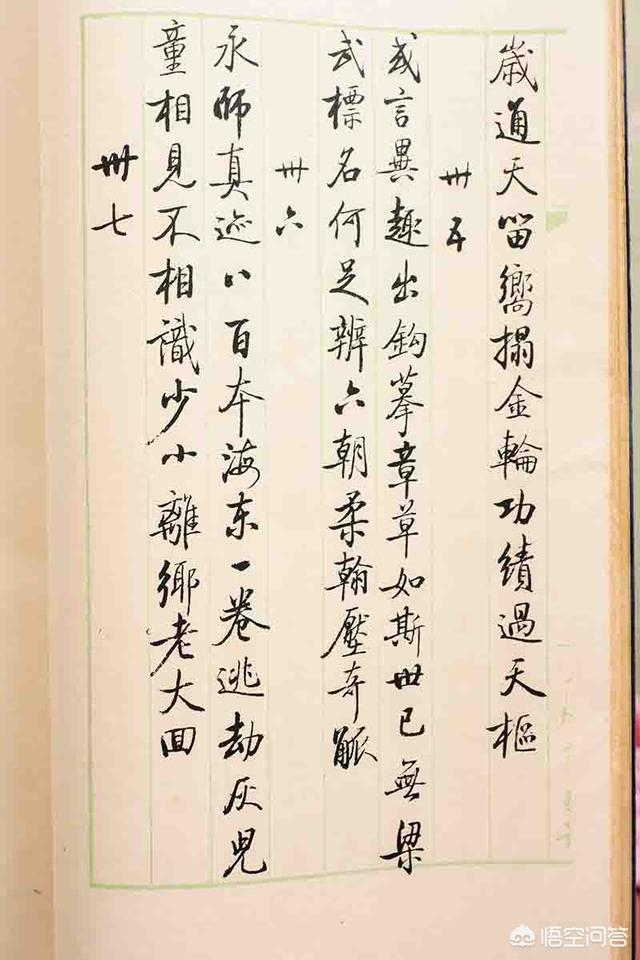 歲通天留嚮搨金輪功績過天樞
卅五
或言異趣出鈎摹章草如斯世已無梁
武標名何足辨六朝柔翰壓奇觚
卅六
永師真迹八百本海東一卷逃劫灰兒
童相見不相識少小離鄉老大回
卅七
悟空问答